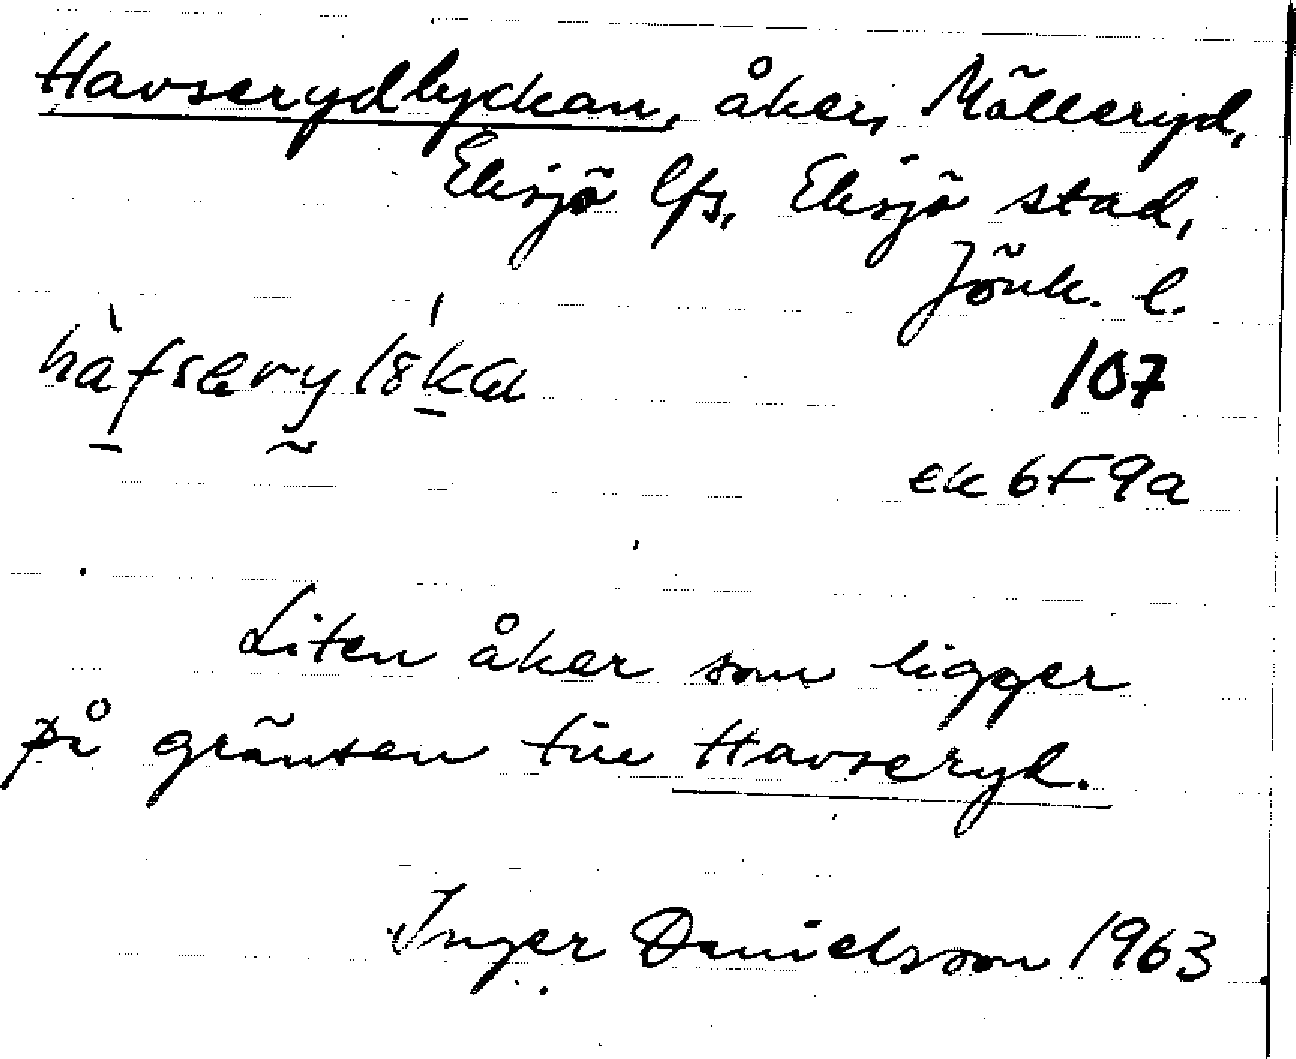 Havserydlyckan, åker, Målleryd,
Eksjö lfs, Eksjö stad,
Jönk. l.
107
ek 6F9a
Liten åker som ligger
på gränsen till Havseryd.
Inger Danielsson 1963